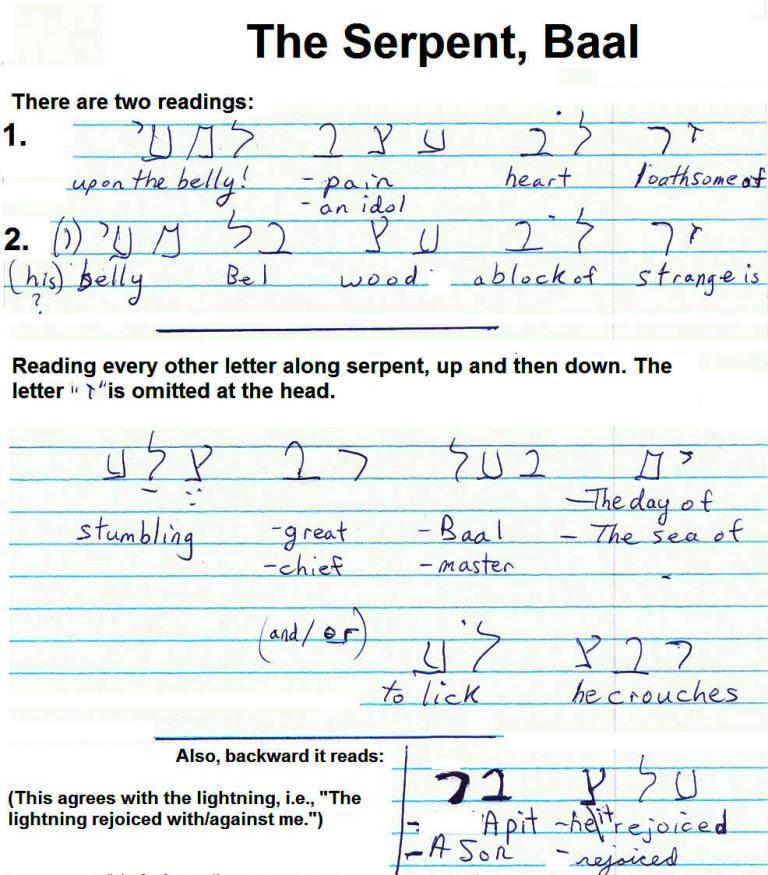 The Serpent, Baal
There are two readings:
1. זר לב עצב למעי
upon the belly! - pain heart loathsome of
- an idol
2. זר לב עצ בל מעי (ו)
(his) belly Bel wood a block of strange is
?
Reading every other letter along serpent, up and then down. The
letter "ז" is omitted at the head.
ימ בעל רב צלע
- The day of
stumbling - great - Baal - The sea of
- chief - master
(and/or) רבצ לע
to lick he crouches
Also, backward it reads:
עלצ בר
(This agrees with the lightning, i.e., "The
lightning rejoiced with/against me.")
- A pit - he/it rejoiced
- A Son - rejoiced